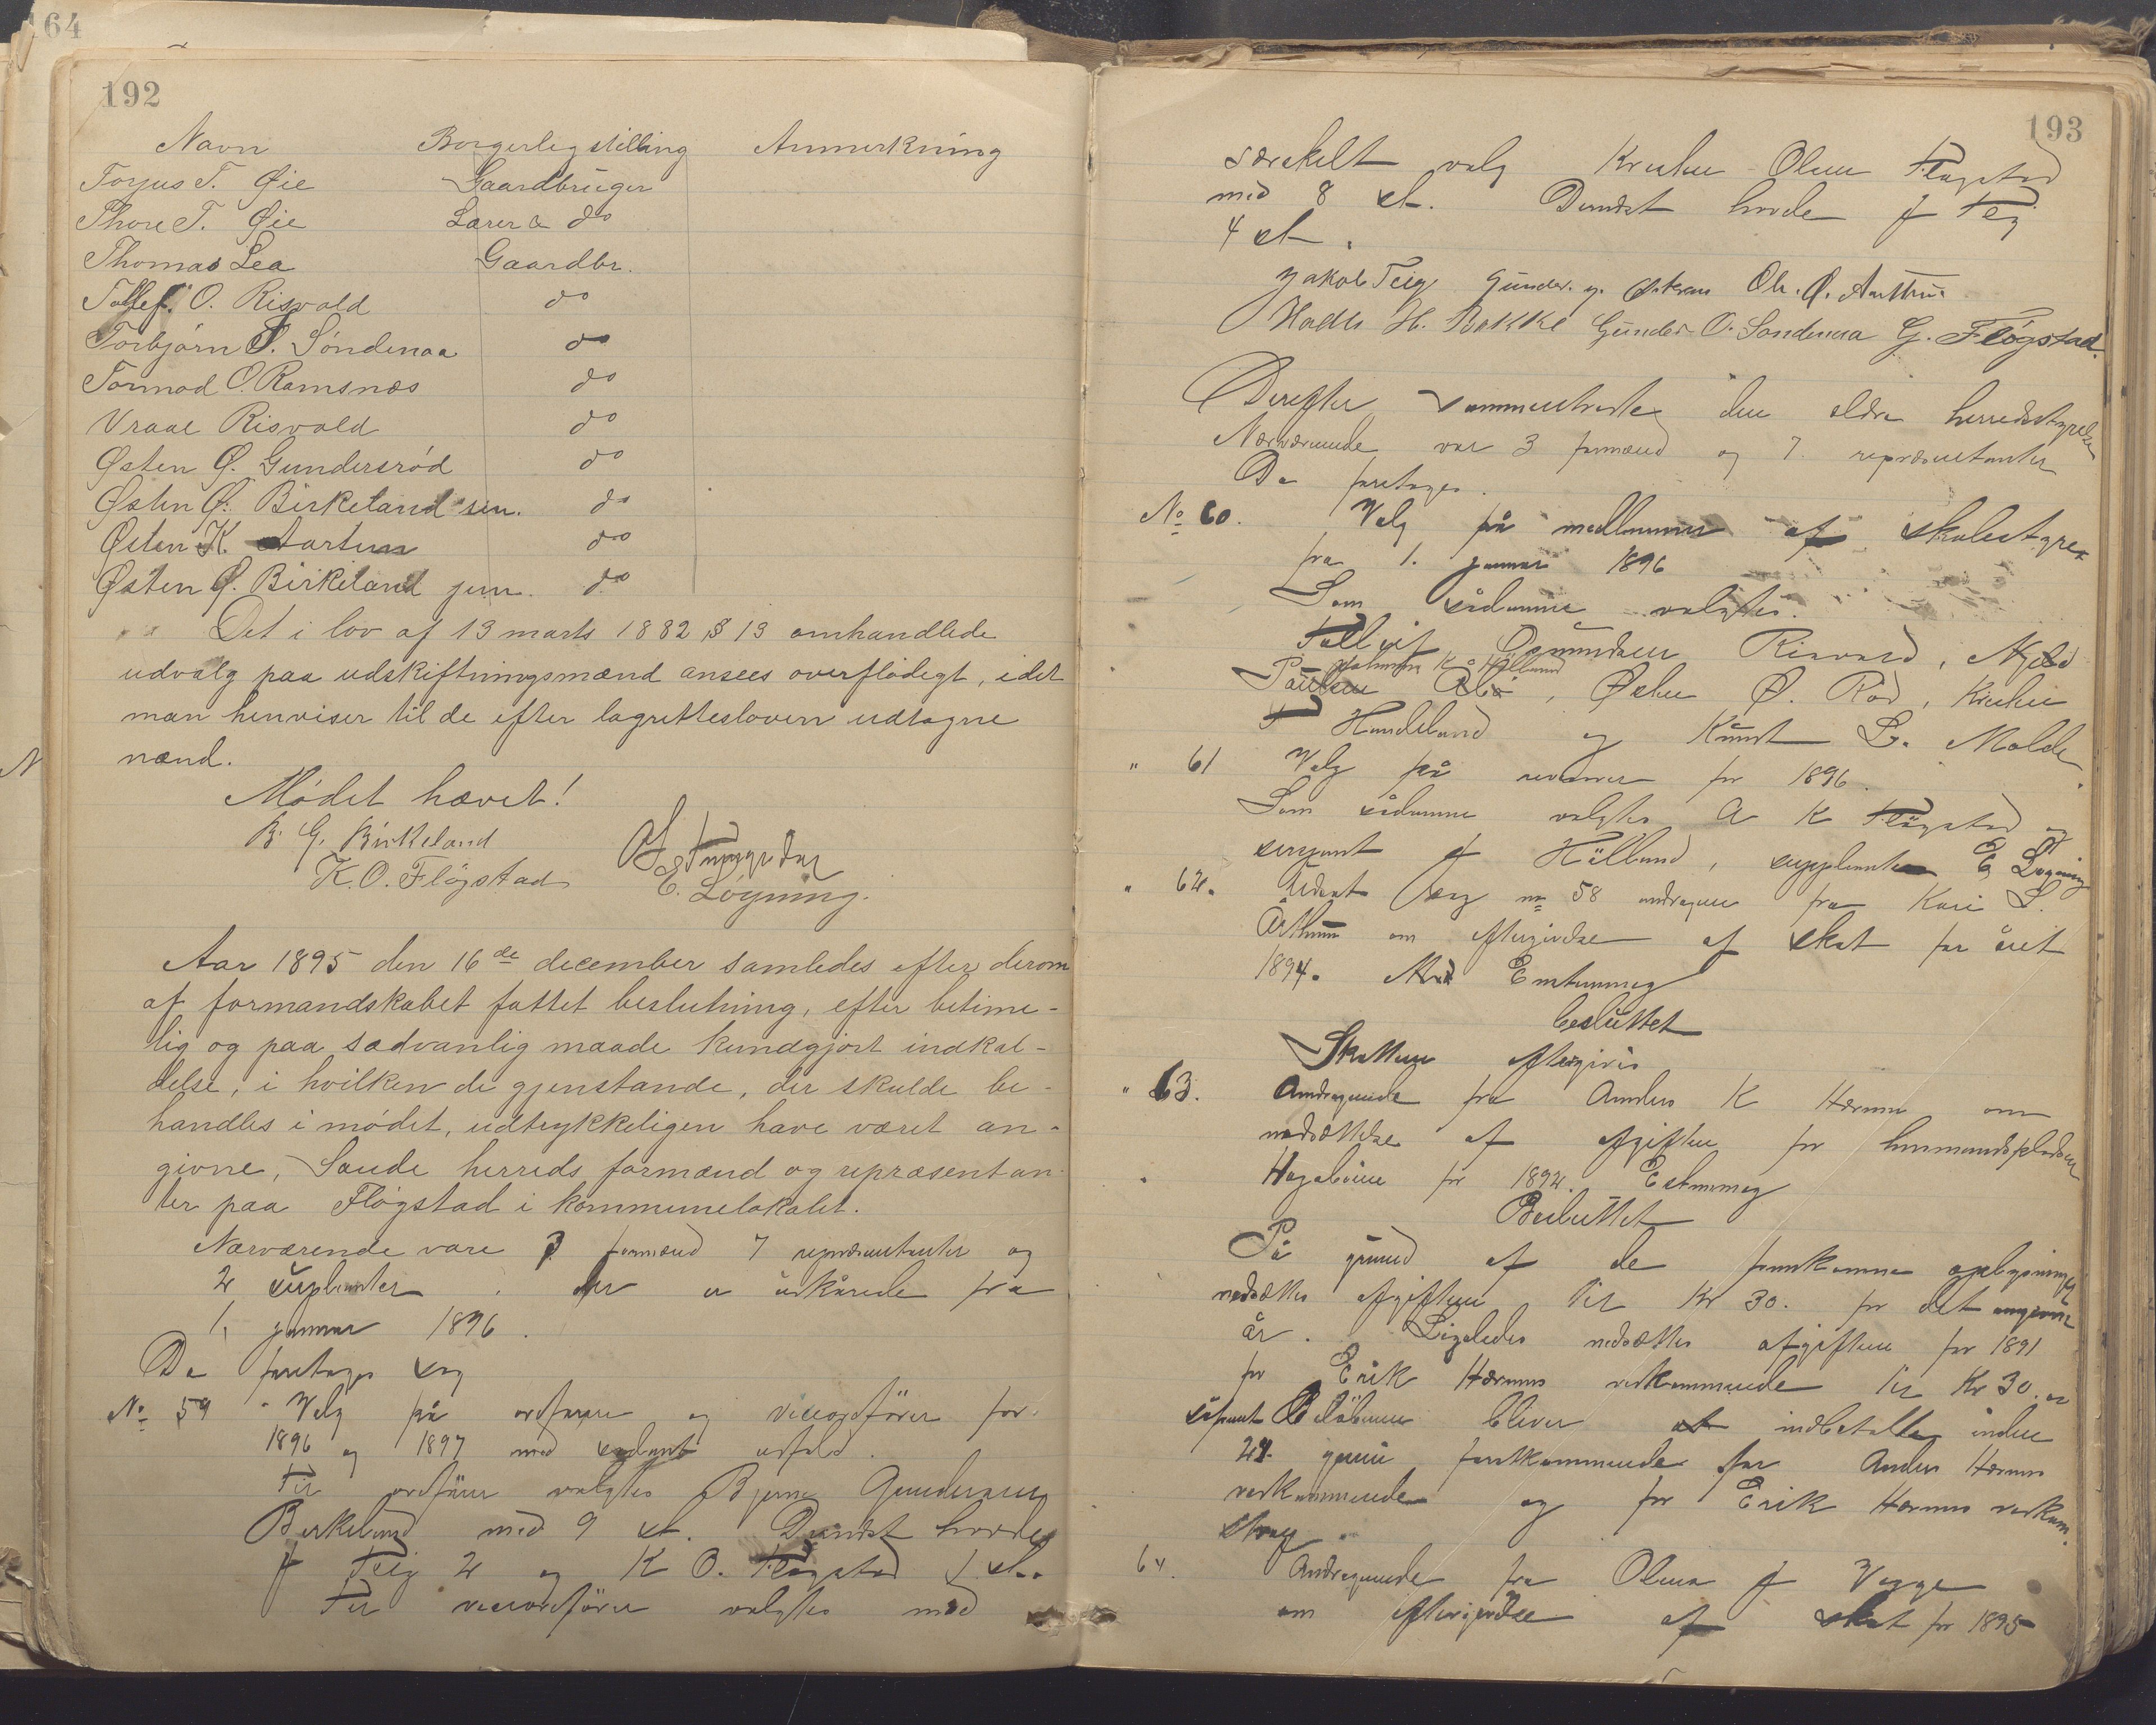 64
192
Navn Borgerlig stilling Anmerkning
Torjus T. Øie Gaardbruger
Thore T. Øie Lærer & do
Thomas Lea Gaardbr.
Tollef. O. Risvold do
Torbjørn O. Søndenaa do
Tormod O. Ramsnæs do
Vraal Risvold do
Østen Ø. Gundersrød do
Østen Ø. Birkeland sen. do
Østen K. Aartun do
Østen Ø. Birkeland jun. do
Det i lov af 13 marts 1882 § 13 omhandlede
udvalg paa udskiftningsmænd ansees overflødigt, idet
man henviser til de efter lagretteslovern udtagne
mænd.
Mødet hævet!
B. G. Birkeland
K. O. Fløgstad E. Løgning.
Aar 1895 den 16de december samledes efter derom
af formandskabet fattet beslutning, efter betime-
lig og paa sædvanlig maade kundgjort indkal-
delse, i hvilken de gjenstande, der skulde be-
handles i mødet, udtrykkeligen have været an-
givne, Saude herreds formænd og repræsentan-
ter paa Fløgstad i kommunelokalet.
Nærværende vare 3 formænd 7 repræsentanter og
2 suplanter. der er udkårede fra
1. januar 1896.
De foretages sag
No 59 Valg på ordfører og viceordfører for
1896 og 1897 med sådant udfald.
Til ordfører valgtes Bjørn Gundersen
Birkeland med 9 st. Dernæst havde
J Teig 2 og K O. Fløgstad 1 st.
Til viceordfører valgtes med
193
særskilt valg Kristen Olsen Fløgstad
med 8 st. Dernæst havde J Teig
4 st.
Jakob Teig Gunder. Ø. Aarthun
H. Bakke Gunder O. Søndenaa G. Fløgstad.
Derefter sammentraadte den ældre herredsstyrelse
Nærværende var 3 formænd og 7 repræsentanter
De foretages.
No 60. Valg på medlemmer af skolestyret
fra 1. januar 1896
Som sådanne valgtes.
Tolleif Osmundsen Risvold,
K. Hylland
Paulsen, Østen Ø. Rød, Kristen
T Handeland og Knut L. Molde.
" 61 Valg på revisorer for 1896.
Som sådanne valgtes A K Fløgstad og
sersjant J Hylland, supplant E Løgning
" 62. Udsat sag no 58 andragende fra Kari L.
Årthun om eftergivelse af skat for året
1894. Enstemmig
besluttet
Skatten eftergives
" 63. Andragende fra Anders K Hærnes om
nedsættelse af afgiften for husmandspladsen
for 1892. Enstemmig
Besluttet
På grund af de fremkomne oplysninger
nedsættes afgiften til Kr 30. for det angivne
år. Ligeledes nedsættes afgiften for 1891
for Erik Hærnes vedkommende til Kr 30.
såfremt Beløbene bliver indbetalte inden
24. juni førstkommende for Anders Hærnes
vedkommende og for Erik Hærnes vedkom.
strax.
64. Andragende fra Olena J Vegge
om eftergivelse af skat for 1895